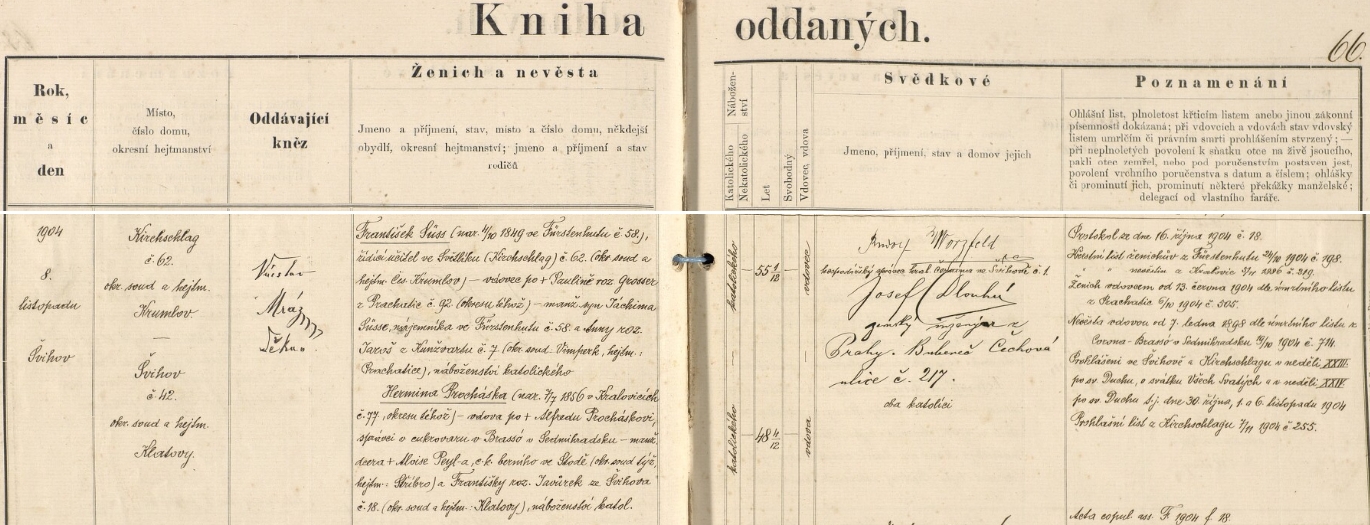 Kniha oddaných.
66.
Rok,
měsíc
a
den
Místo,
číslo domu,
okresní hejtmanství
Oddávající
kněz
Ženich a nevěsta
Jmeno a příjmení, stav, místo a číslo domu, někdejší
obydlí, okresní hejtmanství; jmeno a příjmení a stav
rodičů
Nábožen-
ství
Katolického
Nekatolického
Let
Svobodný
Vdovec, vdova
Svědkové
Jmeno, příjmení, stav a domov jejich
Poznamenání
Ohlášní list, plnoletost křticím listem anebo jinou zákonní
písemností dokázaná; při vdovcích a vdovách stav vdovský
listem umrlčím či právním smrti prohlášením stvrzený; —
při neplnoletých povolení k sňatku otce na živě jsoucího,
pakli otec zemřel, nebo pod poručenstvím postaven jest,
povolení vrchního poručenstva s datum a číslem; ohlášky
či prominutí jich, prominutí některé překážky manželské;
delegací od vlastního faráře.
1904
8.
listopadu
Švihov
Kirchschlag
č. 62.
okr. soud a hejtm.
Krumlov
—
Švihov
č 42.
okr. soud a hejtm.
Klatovy.
Mráz
Děkan
František Süss (nar. 4/10 1849 ve Fürstenhutu č 58.),
řídící učitel ve Světlíku (Kirchschlag) č. 62. (okr. soud a
hejtm. Čes. Krumlov) — vdovec po + Paulině roz. Grosser
z Prachatic č. 92. (okresu téhož) — manž. syn Jáchima
Süsse, nájemníka ve Fürstenhutu č. 58. a Anny roz.
Jaroš z Kunžvartu č. 7. (okr. soud. Vimperk, hejtm.:
Prachatice), náboženství katolického
Hermina Procháska (nar. 7/7 1856 v Kralovicích
č. 77, okresu téhož) — vdova po + Alfredu Procháskovi,
správci v cukrovaru v Brassó v Sedmihradsku — manž.
dcera + Aloise Peyl-a, c.k. berního ve Stodě (okr. soud týž,
hejtm.: Stříbro) a Františky roz. Javůrek ze Švihova
č. 18. (okr. soud a hejtm. Klatovy), náboženství katol.
katolického
55 1/12
vdovec
katolického
48 4/12
vdova
Worzfeld
Josef Dlouhý
zemský inženýr z
Prahy. Bubeneč Čechová
ulice č. 217.
oba katolíci
Protokol ze dne 16. října 1904 č. 18.
Křestní list ženichův z Fürstenhutu 24/10 1904 č. 198.
" nevěstin z Kralovic 1896 č. 219.
Ženich vdovcem od 13. června 1904 dle úmrtního listu
z Prachatic 6/10 1904 č. 505.
Nevěsta vdovou od 7. ledna 1898 dle úmrtního listu z
Corona-Brassó v Sedmihradsku 1904 č. 714.
Prohlášeni ve Švihově a Kirchschlagu v neděli XXIII.
po sv. Duchu, o svátku Všech Svatých a v neděli XXIV.
po sv. Duchu t.j. dne 30. října, 1. a 6. listopadu 1904
Prohlašní list z Kirchschlagu 7/11 1904 č 255.
Acta copul. 1904 f. 18.